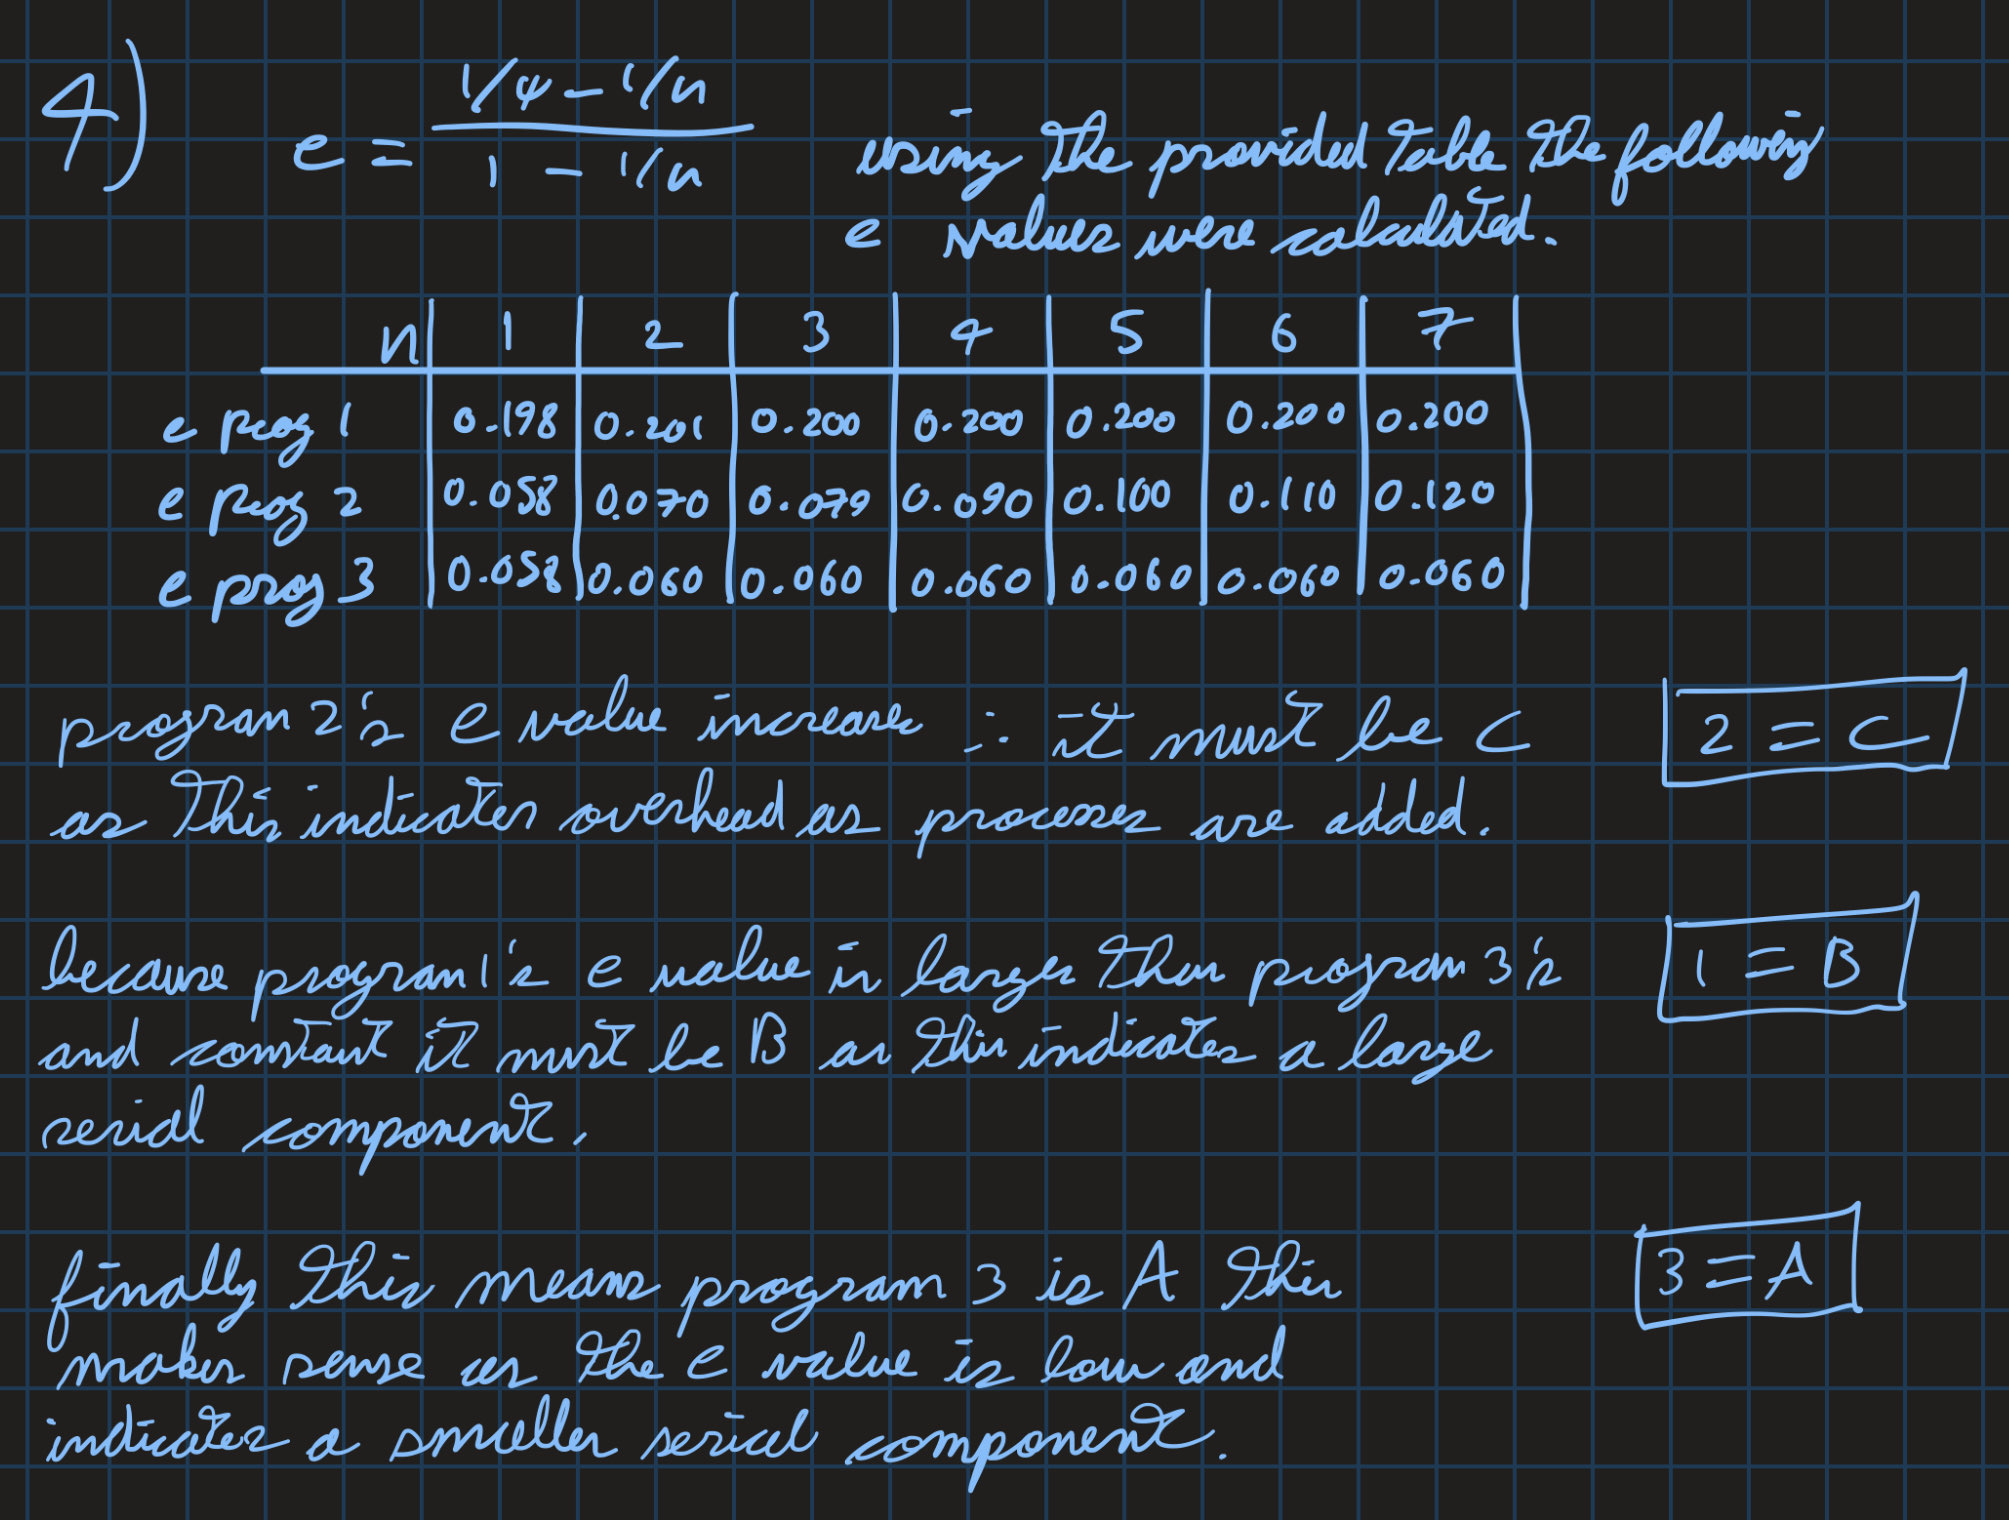 4)
e = (1/ψ - 1/n) / (1 - 1/n) using the provided table the following
e values were calculated.
n | 1 | 2 | 3 | 4 | 5 | 6 | 7
e prog 1 | 0.198 | 0.201 | 0.200 | 0.200 | 0.200 | 0.200 | 0.200
e prog 2 | 0.058 | 0.070 | 0.079 | 0.090 | 0.100 | 0.110 | 0.120
e prog 3 | 0.058 | 0.060 | 0.060 | 0.060 | 0.060 | 0.060 | 0.060
program 2's e value increases ∴ it must be C
as this indicates overhead as processes are added.
2 = C
because program 1's e value is larger than program 3's
and constant it must be B as this indicates a large
serial component.
1 = B
finally this means program 3 is A this
makes sense as the e value is low and
indicates a smaller serial component.
3 = A